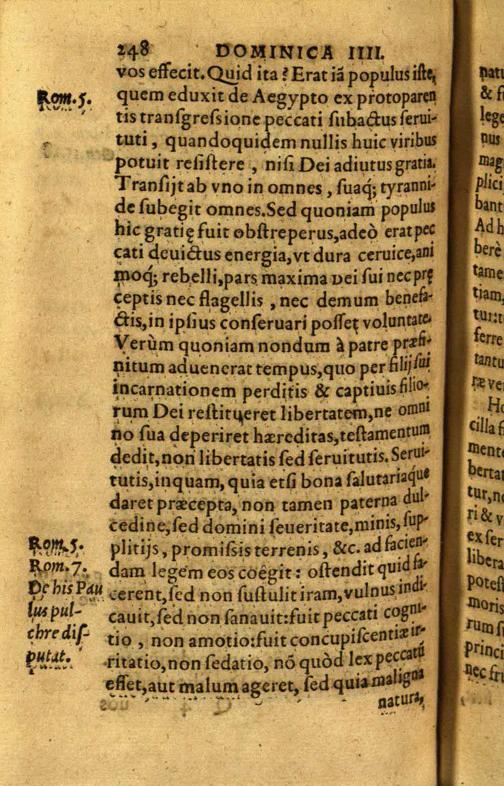 248 DOMINICA IIII.
vos effecit. Quid ita? Erat iã populus iste,
Rom. 5.
quem eduxit de Aegypto ex protoparen
tis transgressione peccati subactus serui-
tuti, quandoquidem nullis huic viribus
potuit resistere, nisi Dei adiutus gratia.
Transijt ab vno in omnes, suaq; tyranni-
de subegit omnes. Sed quoniam populus
hic gratię fuit obstreperus, adeò erat pec
cati deuictus energia, vt dura ceruice, ani
moq; rebelli, pars maxima Dei sui nec prę
ceptis nec flagellis, nec demum benefa-
ctis, in ipsius conseruari posset voluntate.
Verùm quoniam nondum à patre præfi-
nitum aduenerat tempus, quo per filij sui
incarnationem perditis & captiuis filio-
rum Dei restitueret libertatem, ne omni
no sua deperiret hæreditas, testamentum
dedit, non libertatis sed seruitutis. Serui-
tutis, inquam, quia etsi bona salutariaque
daret præcepta, non tamen paterna dul-
cedine, sed domini seueritate, minis, sup-
Rom. 5.
plitijs, promissis terrenis, &c. ad facien-
Rom. 7.
dam legem eos coëgit: ostendit quid fa-
De his Pau
cerent, sed non sustulit iram, vulnus indi
lus pul-
cauit, sed non sanauit: fuit peccati cogni-
chrè dis-
tio, non amotio: fuit concupiscentiæ ir-
putat.
ritatio, non sedatio, nõ quòd lex peccatũ
esset, aut malum ageret, sed quia maligna
natura,
& fi
lege
nus
mag
plici
bant
Ad h
berè
tame
tiam,
tur: t
ferre
tantu
ræ ve
Ho
cilla f
mente
bertat
tur, n
ri & v
ex ser
libera
potest
moris
rum s
princi
nec fru